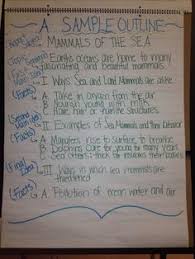 A SAMPLE OUTLINE
MAMMALS OF THE SEA
Earth's oceans are home to many
fascinating and beautiful mammals.
I. Ways Sea and Land Mammals are alike
A. Take in oxygen from the air
B. young with milk
C. Have hair or fur structures
II. Examples of Sea Mammals and their Behavior
A. Manatees rise to surface to breathe
B. Dolphins care for young for many years
C. Sea otters: thick fur insulates their bodies
III. Ways in which sea mammals are
threatened
A. Pollution of ocean water and air
(Main Idea)
(Facts)
(Second Main Idea)
(Facts)
(Final Idea)
(Facts)